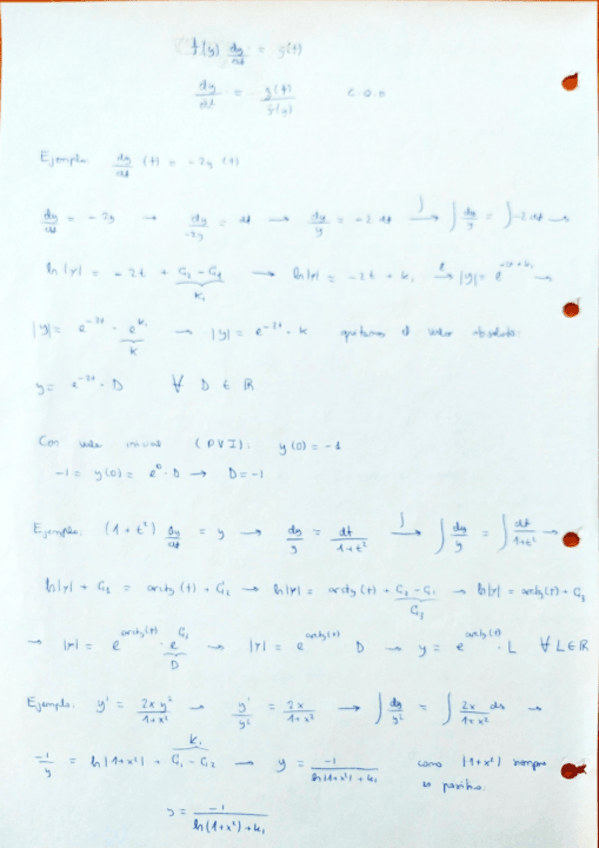 f(y) dy/dt = g(t)
dy/dt = g(t)/f(y) C.Q.D
Ejemplo: dy/dt (t) = -2y (t)
dy/dt = -2y → dy/-2y = dt → dy/y = -2 dt ∫→ ∫ dy/y = ∫ -2 dt →
ln|y| = -2t + C₂ - C₁ → ln|y| = -2t + k₁ e→ |y| = e^(-2t + k₁) →
K₁
|y| = e^(-2t) · e^(k₁) → |y| = e^(-2t) · k quitamos el valor absoluto:
k
y = e^(-2t) · D ∀ D ∈ ℝ
Con valor inicial (PVI): y(0) = -1
-1 = y(0) = e⁰ · D → D = -1
Ejemplo: (1 + t²) dy/dt = y → dy/y = dt/1+t² ∫→ ∫ dy/y = ∫ dt/1+t² →
ln|y| + C₂ = arctg(t) + C₁ → ln|y| = arctg(t) + C₂ - C₁ → ln|y| = arctg(t) + C₃
C₃
→ |y| = e^(arctg(t)) · e^(C₃) → |y| = e^(arctg(t)) D → y = e^(arctg(t)) · L ∀ L ∈ ℝ
D
Ejemplo: y' = 2x y²/1+x² → y'/y² = 2x/1+x² → ∫ dy/y² = ∫ 2x/1+x² dx →
K₁
-1/y = ln|1+x²| + C₁ - C₂ → y = -1/ln|1+x²| + k₁ como |1+x²| siempre
es positivo:
y = -1/ln(1+x²) + k₁